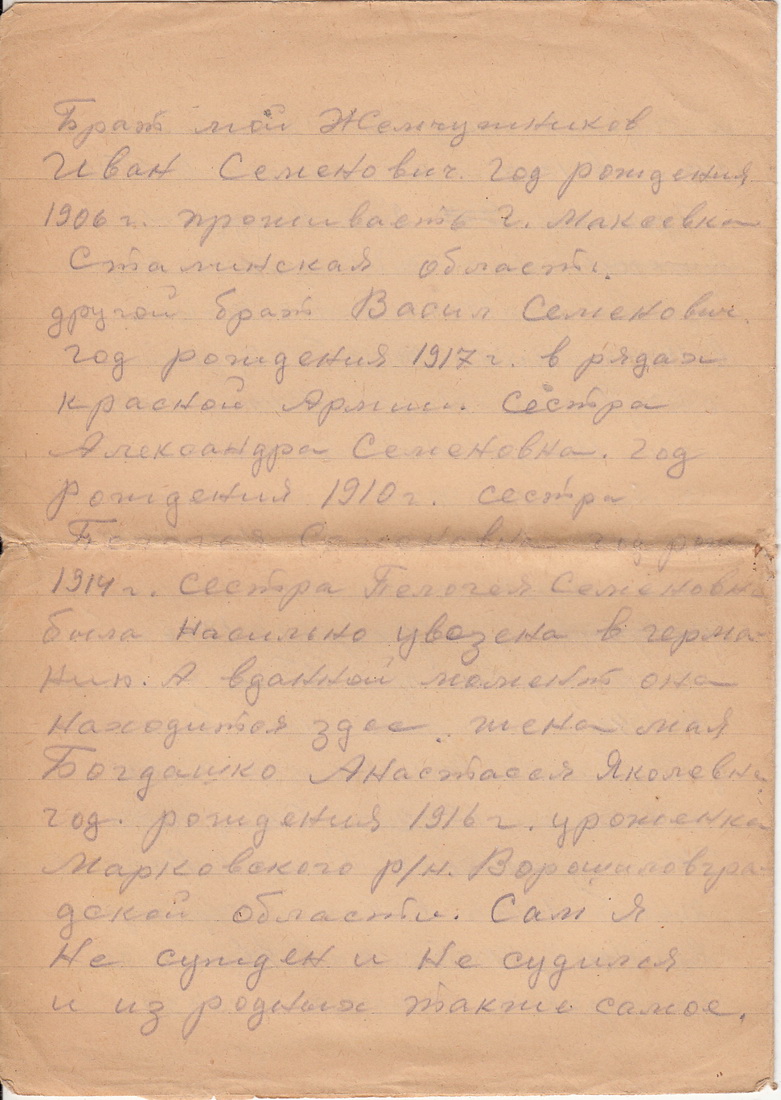 Брат мой Жемчужников
Иван Семенович. год рождения
1906 г. проживаеть г. Макеевка
Сталинская область.
другой брат Васил Семенович.
год рождения 1917 г. в рядах
красной Армии. сестра
Александра Семеновна. год
рождения 1910 г. сестра
Пелогея Семеновна год рож
1914 г. сестра Пелогея Семеновна
была насильно увезена в герма
нию. А вданной момент она
находится здес. жена мая
Богдашко Анастасея Яколевна
год. рождения 1916 г. уроженка
Марковского р/н. Ворошиловгра
дской области. Сам я
Не сужден и Не судился
и из родных также самое.